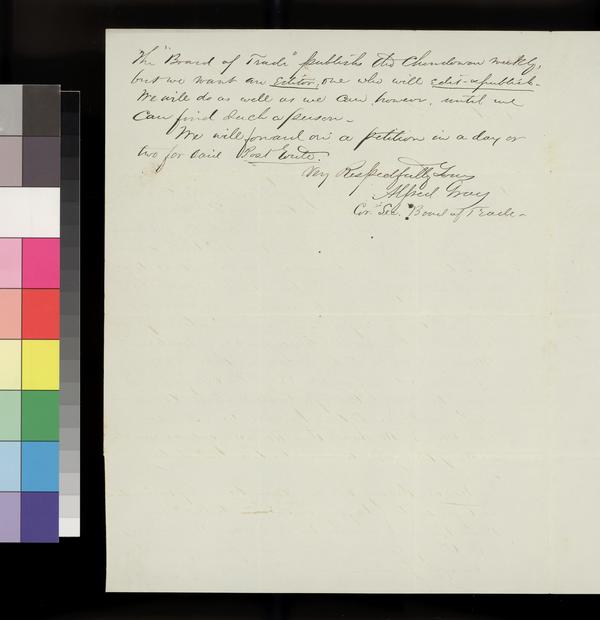 The "Board of Trade" publish the Chindowan weekly,
but we want an Editor, one who will edit & publish.
We will do as well as we can however, until we
can find such a person.
We will forward on a petition in a day or
two for said Post Route.
Very Respectfully Yours
Alfred Gray
Cor. Sec. "Board of Trade"